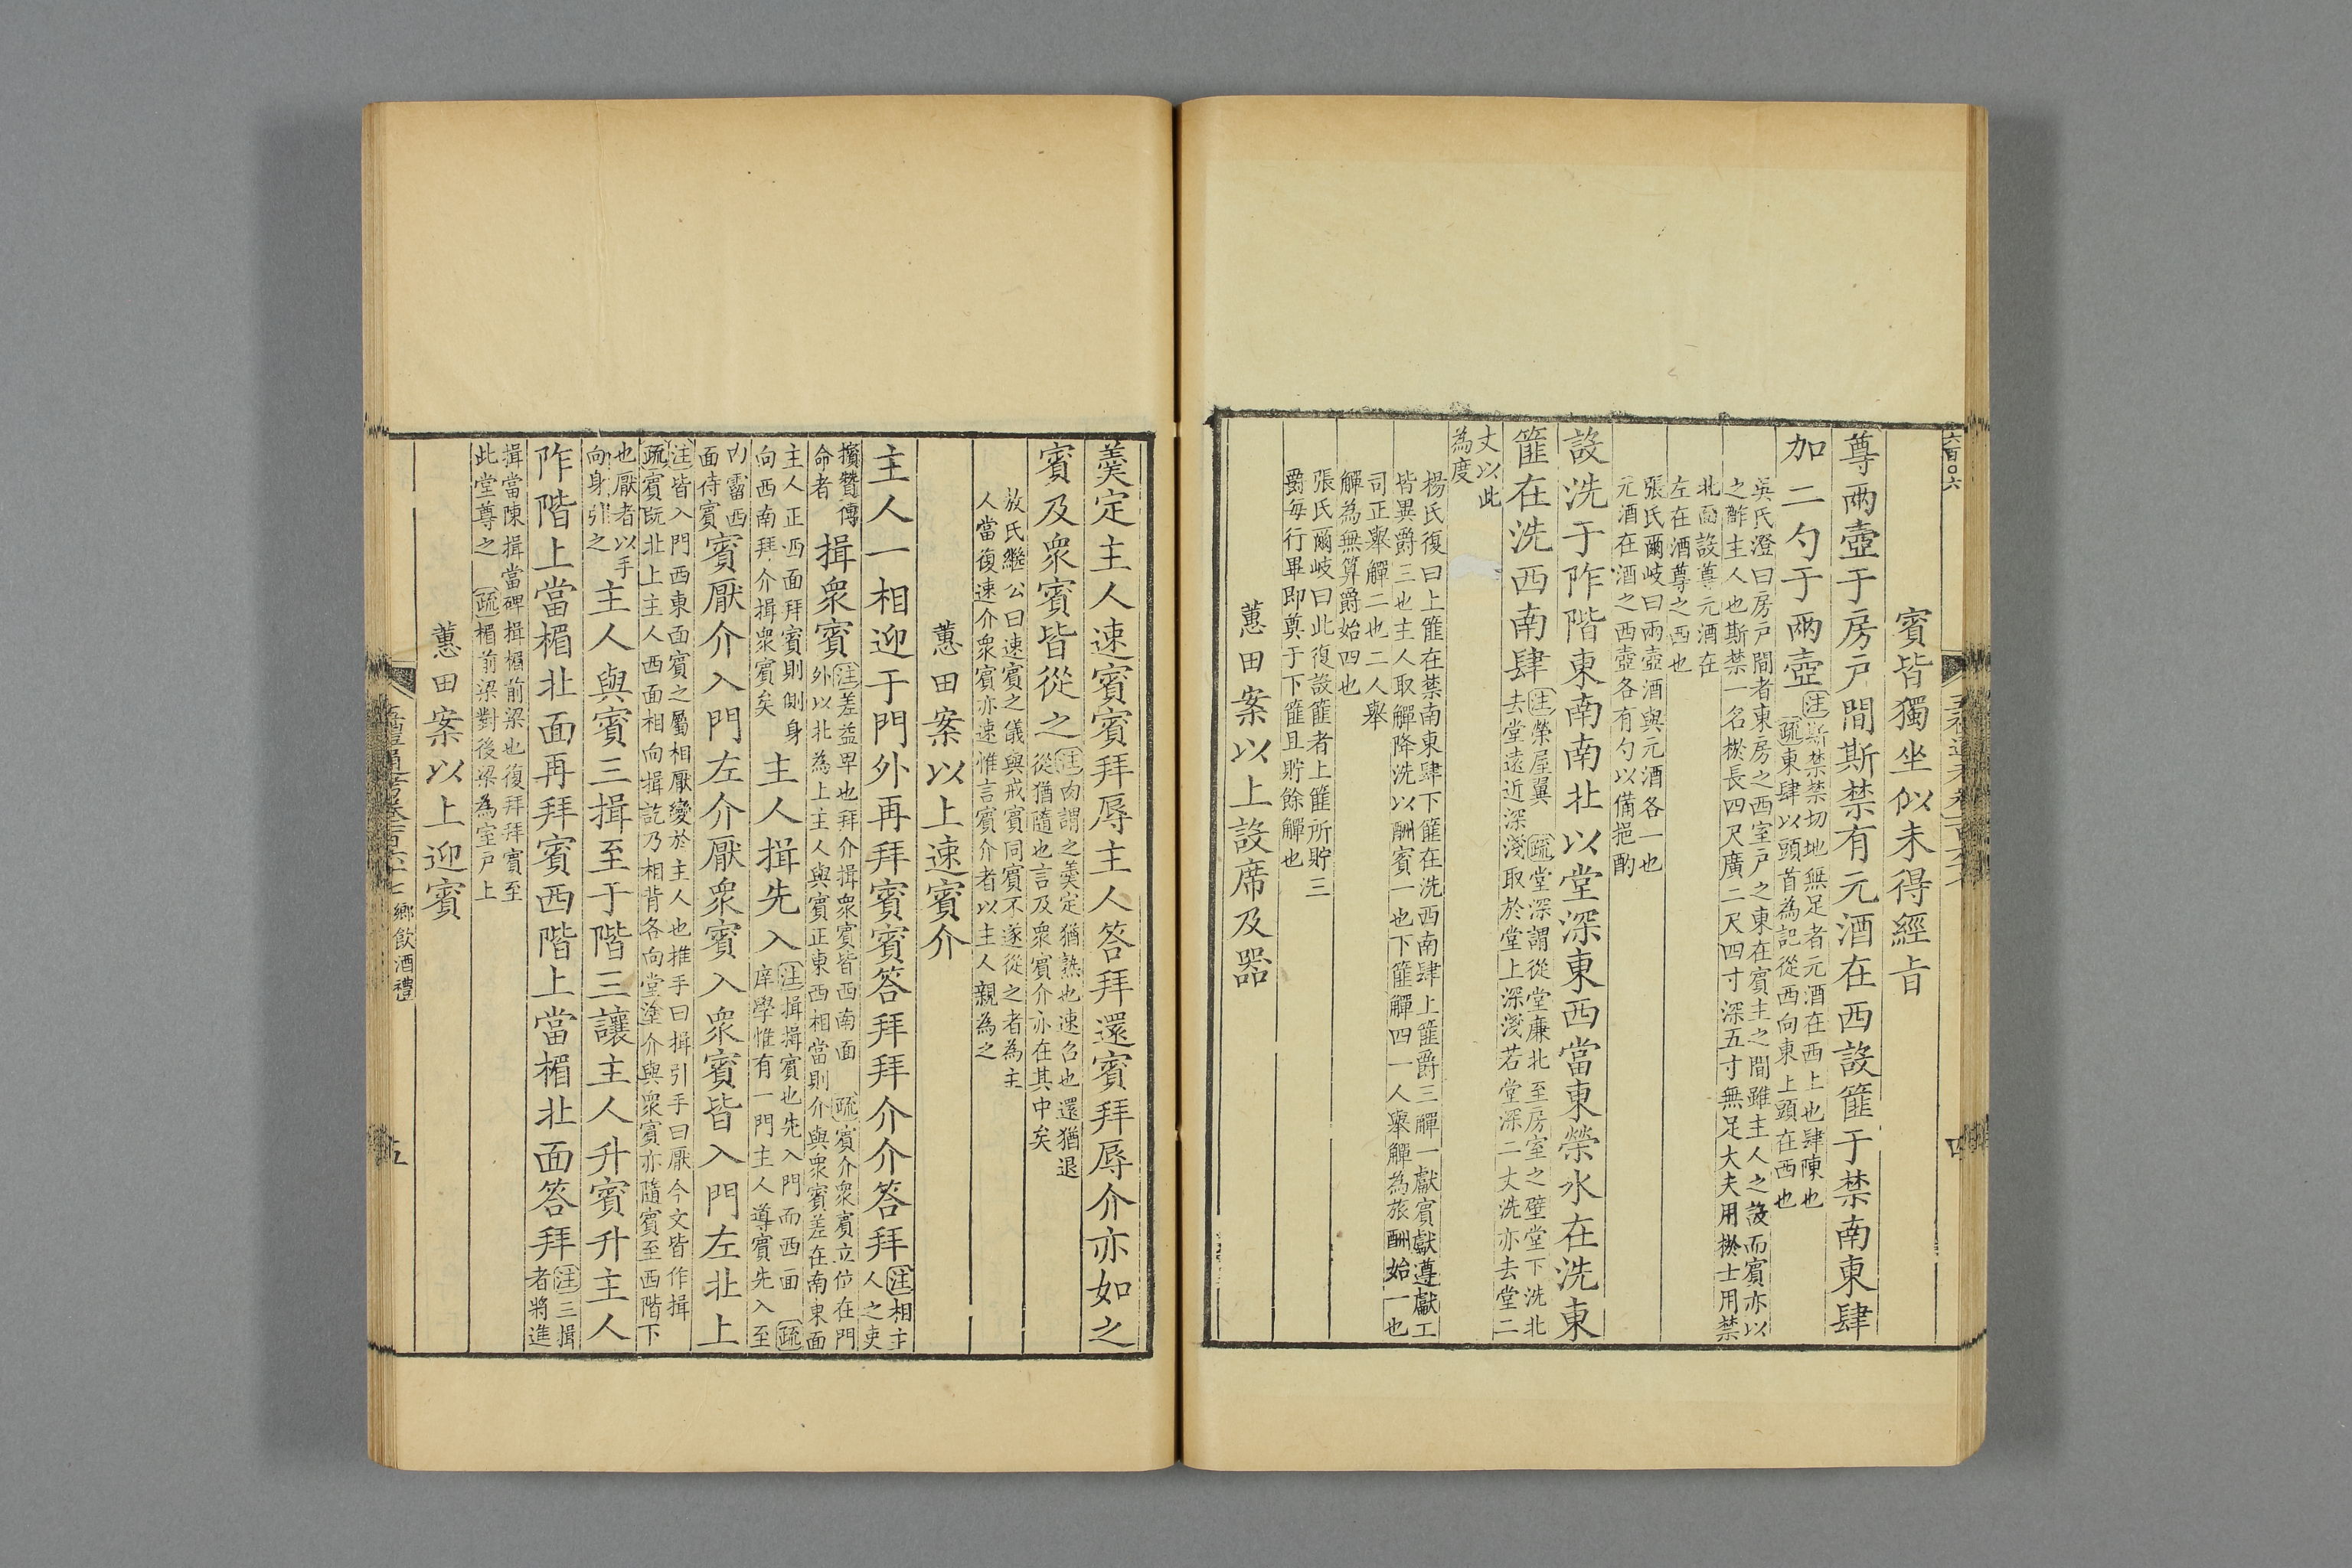 六百〇六
賓皆獨坐似未得經㫖
尊兩壺于房戶間斯禁有元酒在西設篚于禁南東肆
加二勺于兩壺
注斯禁禁切地無足者元酒在西上也肆陳也
疏東肆以頭首為記從西向東上頭在西也
吳氏澄曰房戶間者東房之西室戶之東在賓主之間雖主人之設而賓亦以
之酢主人也斯禁一名棜長四尺廣二尺四寸深五寸無足大夫用棜士用禁
北面設尊元酒在
左在酒尊之西也
張氏爾岐曰兩壺酒與元酒各一也
元酒在酒之西壺各有勺以備挹酌
設洗于阼階東南南北以堂深東西當東榮水在洗東
篚在洗西南肆
注榮屋翼 疏堂深謂從堂廉北至房室之壁堂下洗北
去堂遠近深淺取於堂上深淺若堂深二丈洗亦去堂二
丈以此
為度
楊氏復曰上篚在禁南東肆下篚在洗西南肆上篚爵三觶一獻賓獻遵獻工
皆異爵三也主人取觶降洗以酬賓一也下篚觶四一人舉觶為旅酬始一也
司正舉觶二也二人舉
觶為無算爵始四也
張氏爾岐曰此復設篚者上篚所貯三
爵每行畢即奠于下篚且貯餘觶也
蕙田案以上設席及器
羹定主人速賓賓拜辱主人答拜還賓拜辱介亦如之
賓及衆賓皆從之
注肉謂之羹定猶熟也速召也還猶退
從猶隨也言及衆賓介亦在其中矣
敖氏繼公曰速賓之儀與戒賓同賓不遂從之者為主
人當復速介衆賓亦速惟言賓介者以主人親為之
蕙田案以上速賓介
主人一相迎于門外再拜賓賓答拜拜介介答拜
注相主
人之吏
擯贊傳
命者
揖衆賓
注差益卑也拜介揖衆賓皆西南面 疏賓介衆賓立位在門
外以北為上主人與賓正東西相當則介與衆賓差在南東面
主人正西面拜賓則側身
向西南拜介揖衆賓矣
主人揖先入
注揖揖賓也先入門而西面 疏
庠學惟有一門主人導賓先入至
內霤西
面待賓
賓厭介入門左介厭衆賓入衆賓皆入門左北上
注皆入門西東面賓之屬相厭變於主人也推手曰揖引手曰厭今文皆作揖
疏賓既北上主人西面相向揖訖乃相背各向堂塗介與衆賓亦隨賓至西階下
也厭者以手
向身引之
主人與賓三揖至于階三讓主人升賓升主人
阼階上當楣北面再拜賓西階上當楣北面答拜
注三揖
者將進
揖當陳揖當碑揖楣前梁也復拜拜賓至
此堂尊之 疏楣前梁對後梁為室戶上
蕙田案以上迎賓
鄉飲酒禮
五